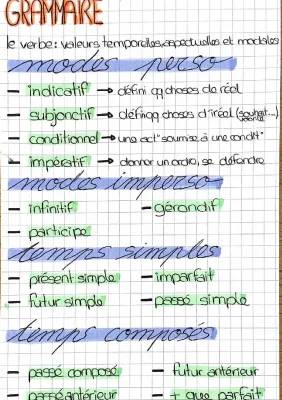 GRAMMAIRE
le verbe: valeurs temporelles, aspectuelles et modales
modes perso
- indicatif → défini qq choses de réel
- subjonctif → défini qq choses d'iréel (souhait...)
- conditionnel → une act° soumise à une condit°
- impératif → donner un ordre, se défendre
modes imperso
- infinitif - gérondif
- participe
temps simples
- présent simple - imparfait
- futur simple - passé simple
temps composés
- passé composé - futur antérieur
- passé antérieur - + que parfait